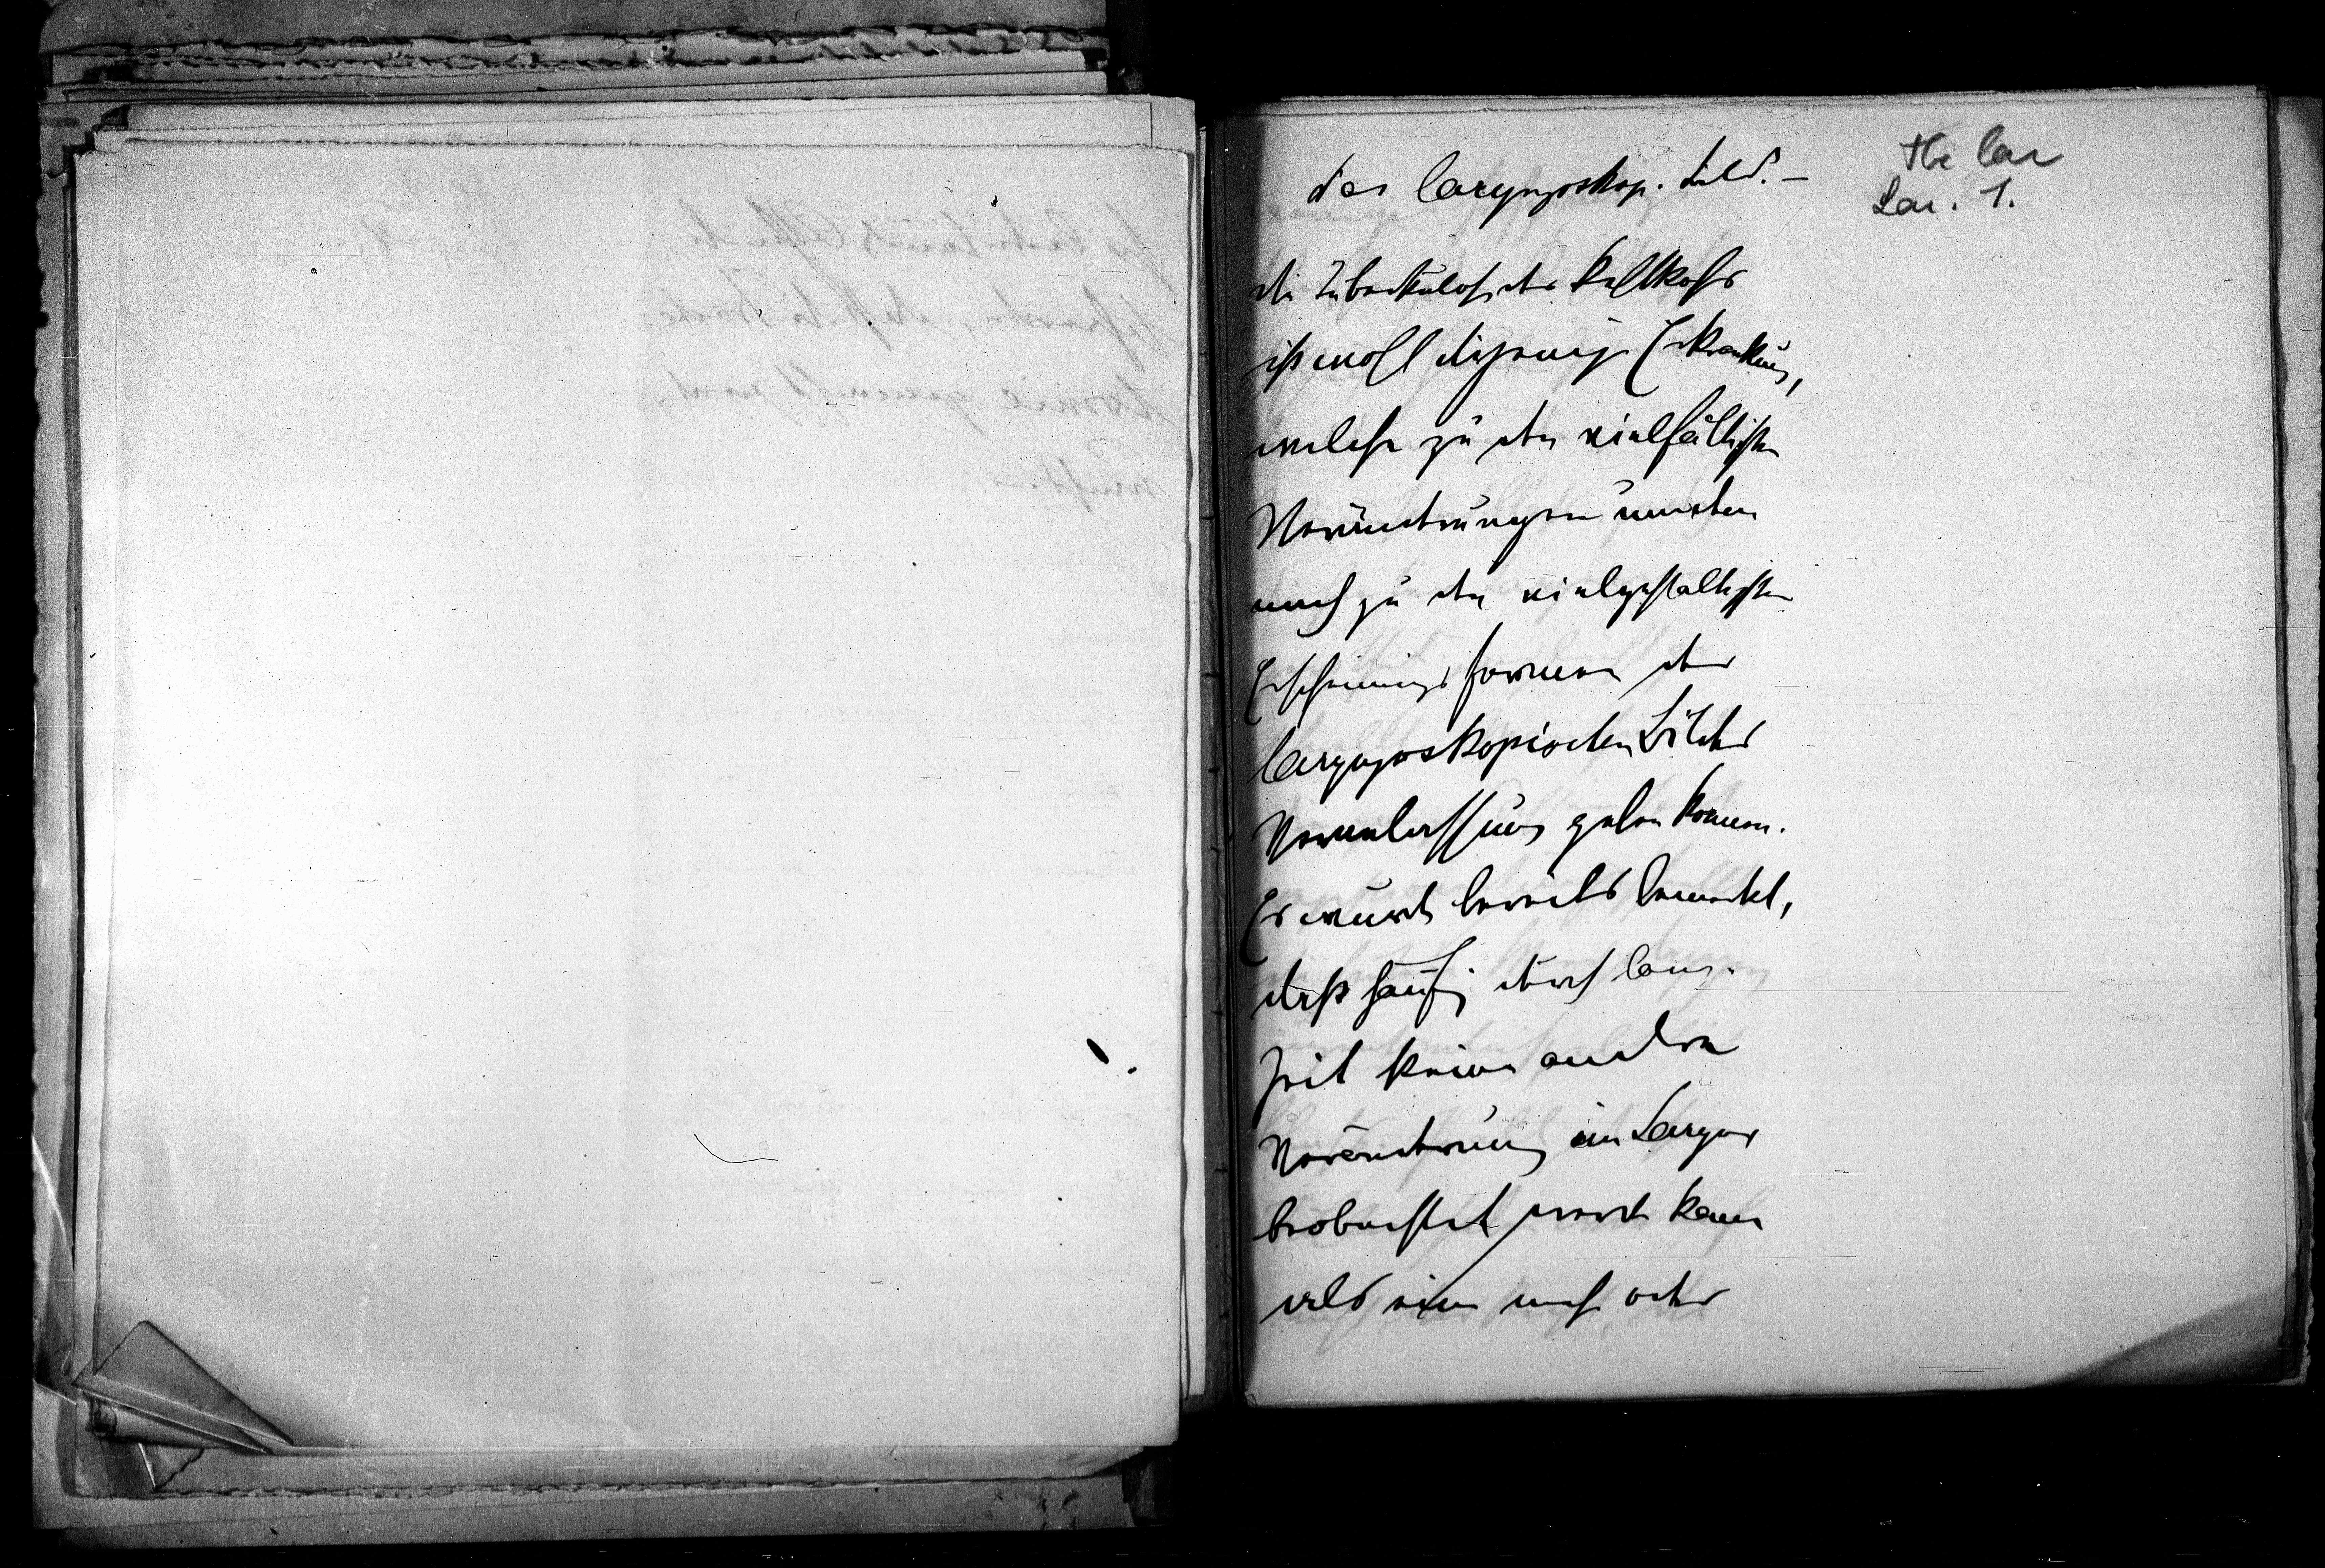 Tbc lar
Lar. 1.
das laryngoskop. Bild. –
die Tuberkulose des Kehlkopfs
ist wohl diejenige Erkrankung,
welche zu den vielfältigsten
Veränderungen und
auch zu den vielgestaltigsten
Erscheinungsformen der
laryngoskopischen Bilder
Veranlassung geben können.
Es wurde bereits bemerkt,
dass häufig durch lange
Zeit keine andere
Veränderung im Larynx
beobachtet werden kann
als eine mehr oder